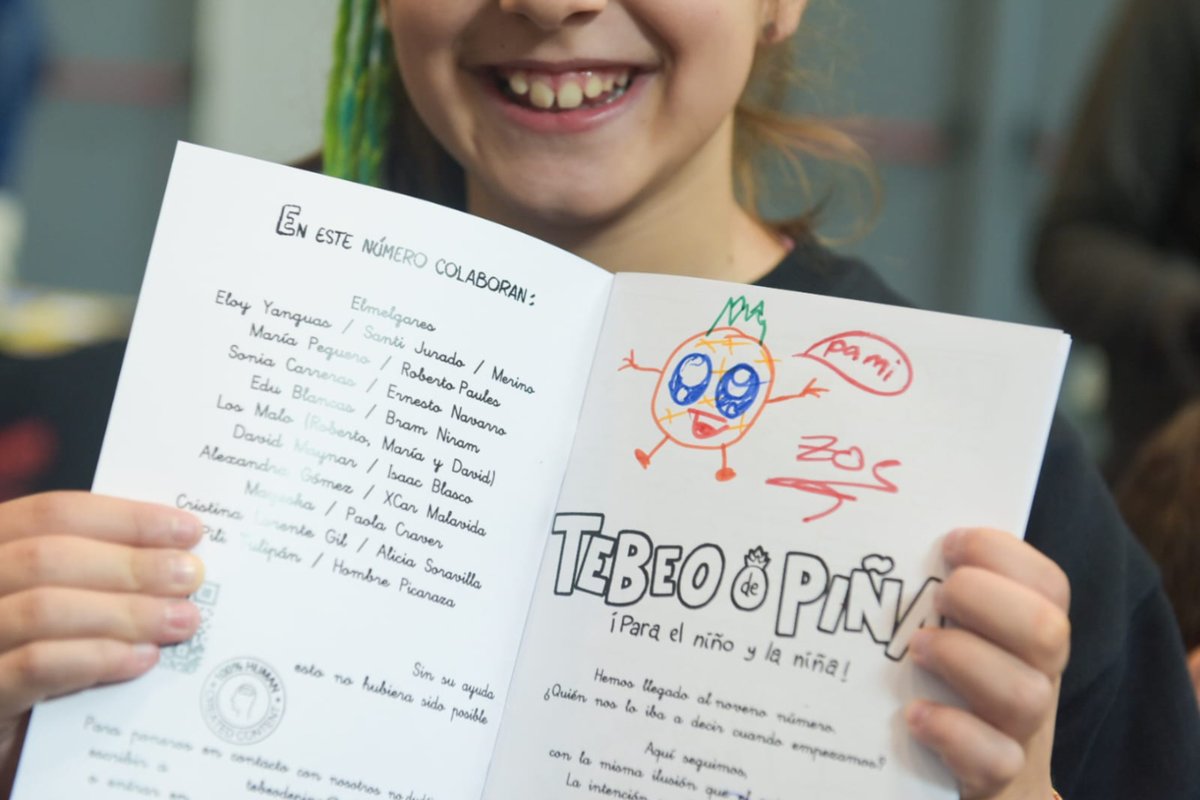 EN ESTE NÚMERO COLABORAN:
Elmelgares
Eloy Yanguas / Santi Jurado / Merino
María Peguero / Roberto Paules
Sonia Carreras / Ernesto Navarro
Edu Blancas / Bram Niram
Los Malo (Roberto, María y David)
David Maynar / Isaac Blasco
Alexandra Gómez / XCar Malavida
Mayeska / Paola Craver
Cristina Lorente Gil / Alicia Soravilla
Piti Tulipán / Hombre Picaraza
Sin su ayuda
esto no hubiera sido posible
100% HUMAN
CREATED CONTENT
Para poneros en contacto con nosotros no
escribir a
o entrar en
pami
ZOS
TEBEO de PIÑA
¡PARA el niño y la niña!
Hemos llegado al noveno número.
¿Quién nos lo iba a decir cuando empezamos?
Aquí seguimos,
con la misma ilusión que el
La intención